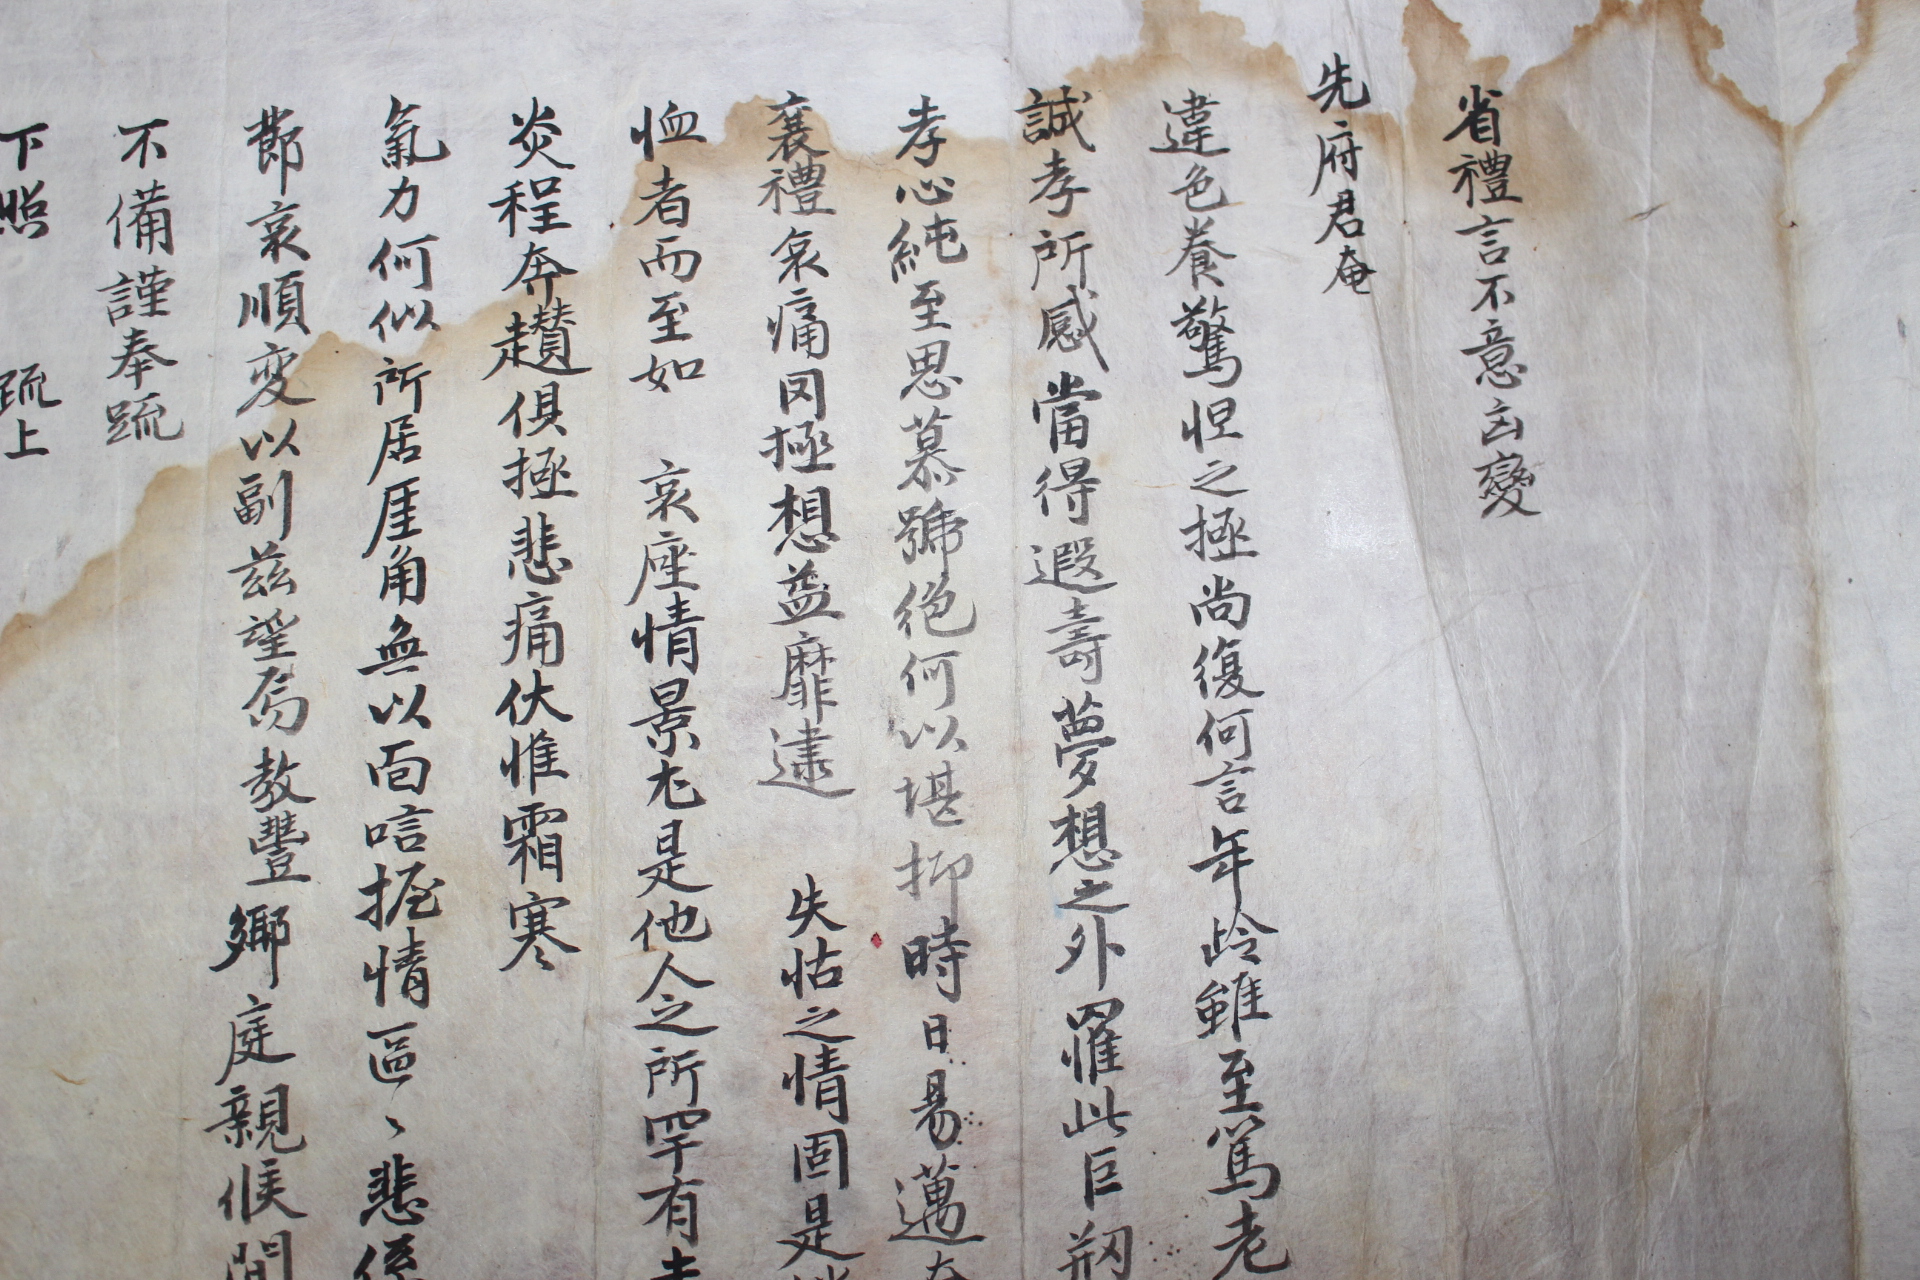 省禮言不意凶變
先府君奄
違色養驚怛之極尚復何言年齡雖至篤老
誠孝所感當得遐壽夢想之外罹此巨刱
孝心純至思慕號絶何以堪抑時日易邁
襄禮哀痛罔極想益靡逮 失怙之情固是
恤者而至如 哀座情景尤是他人之所罕有
炎程奔趲俱極悲痛伏惟霜寒
氣力何似所居厓角無以面唁握情區〻悲係
節哀順変以副兹望焉敎豐鄕庭親候間
不備謹奉疏
下照 疏上